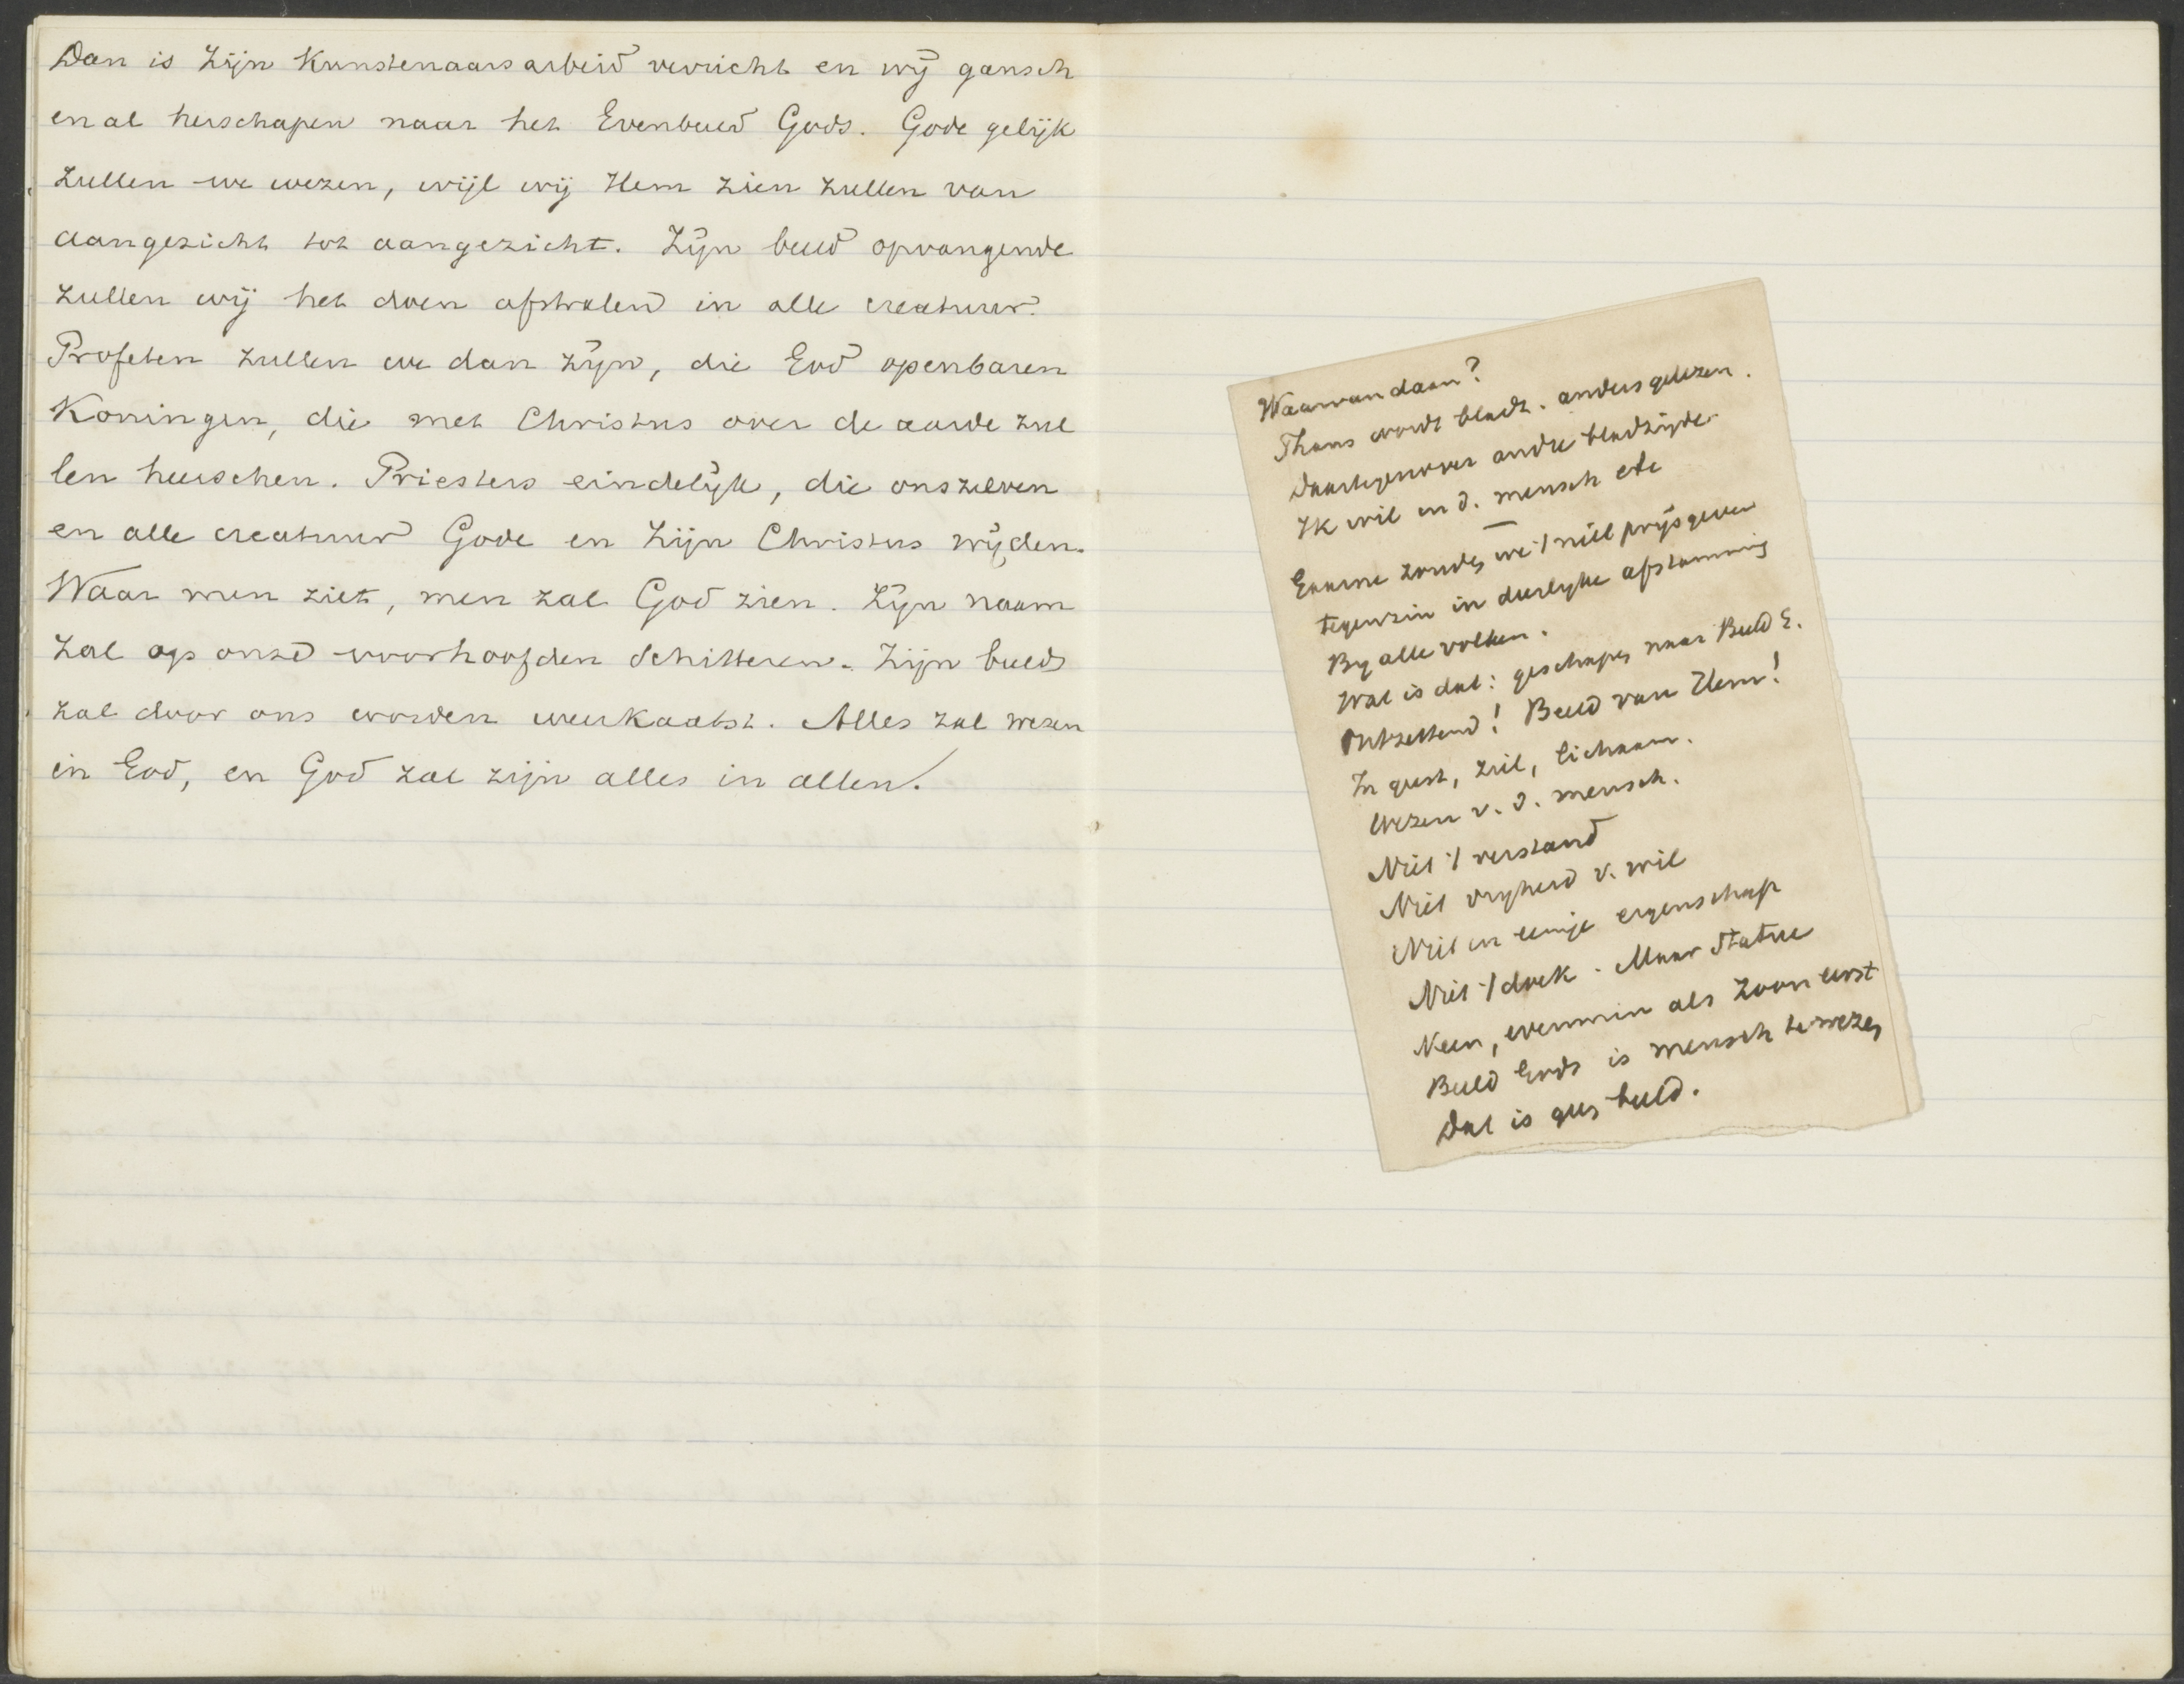 Dan is Zijn Kunstenaarsarbeid verricht en wij gansch
en al herschapen naar het Evenbeeld Gods. Gode gelijk
zullen we wezen, wijl wij Hem zien zullen van
aangezicht tot aangezicht. Zijn beeld opvangende
zullen wij het doen afstralen in alle creatuur.
Profeten zullen we dan zijn, die God openbaren
Koningen, die met Christus over de aarde zul
len heerschen. Priesters eindelijk, die onszelven
en alle creatuur Gode en Zijn Christus wijden.
Waar men ziet, men zal God zien. Zijn naam
zal op onze voorhoofden schitteren. Zijn beeld
zal door ons worden weerkaatst. Alles zal wezen
in God, en God zal zijn alles in allen.
Waarvandaan?
Thans wordt bladz. anders gelezen.
Daartegenover andre bladzijde
Ik wil in d. mensch etc
Gaarne zouden we 't niet prijsgeven
tegenzin in dierlijke afstamming
By alle volken.
Wat is dat: geschapen naar Beeld G.
Ontzettend! Beeld van Hem!
In geest, ziel, lichaam.
Wezen v. d. mensch.
Niet 't verstand
Niet vryheid v. wil
Niet in eenige eigenschap
Niet 't doek. Maar Statue
Neen, evenmin als Zoon eerst
Beeld Gods is mensch te wezen
Dat is geen beeld.